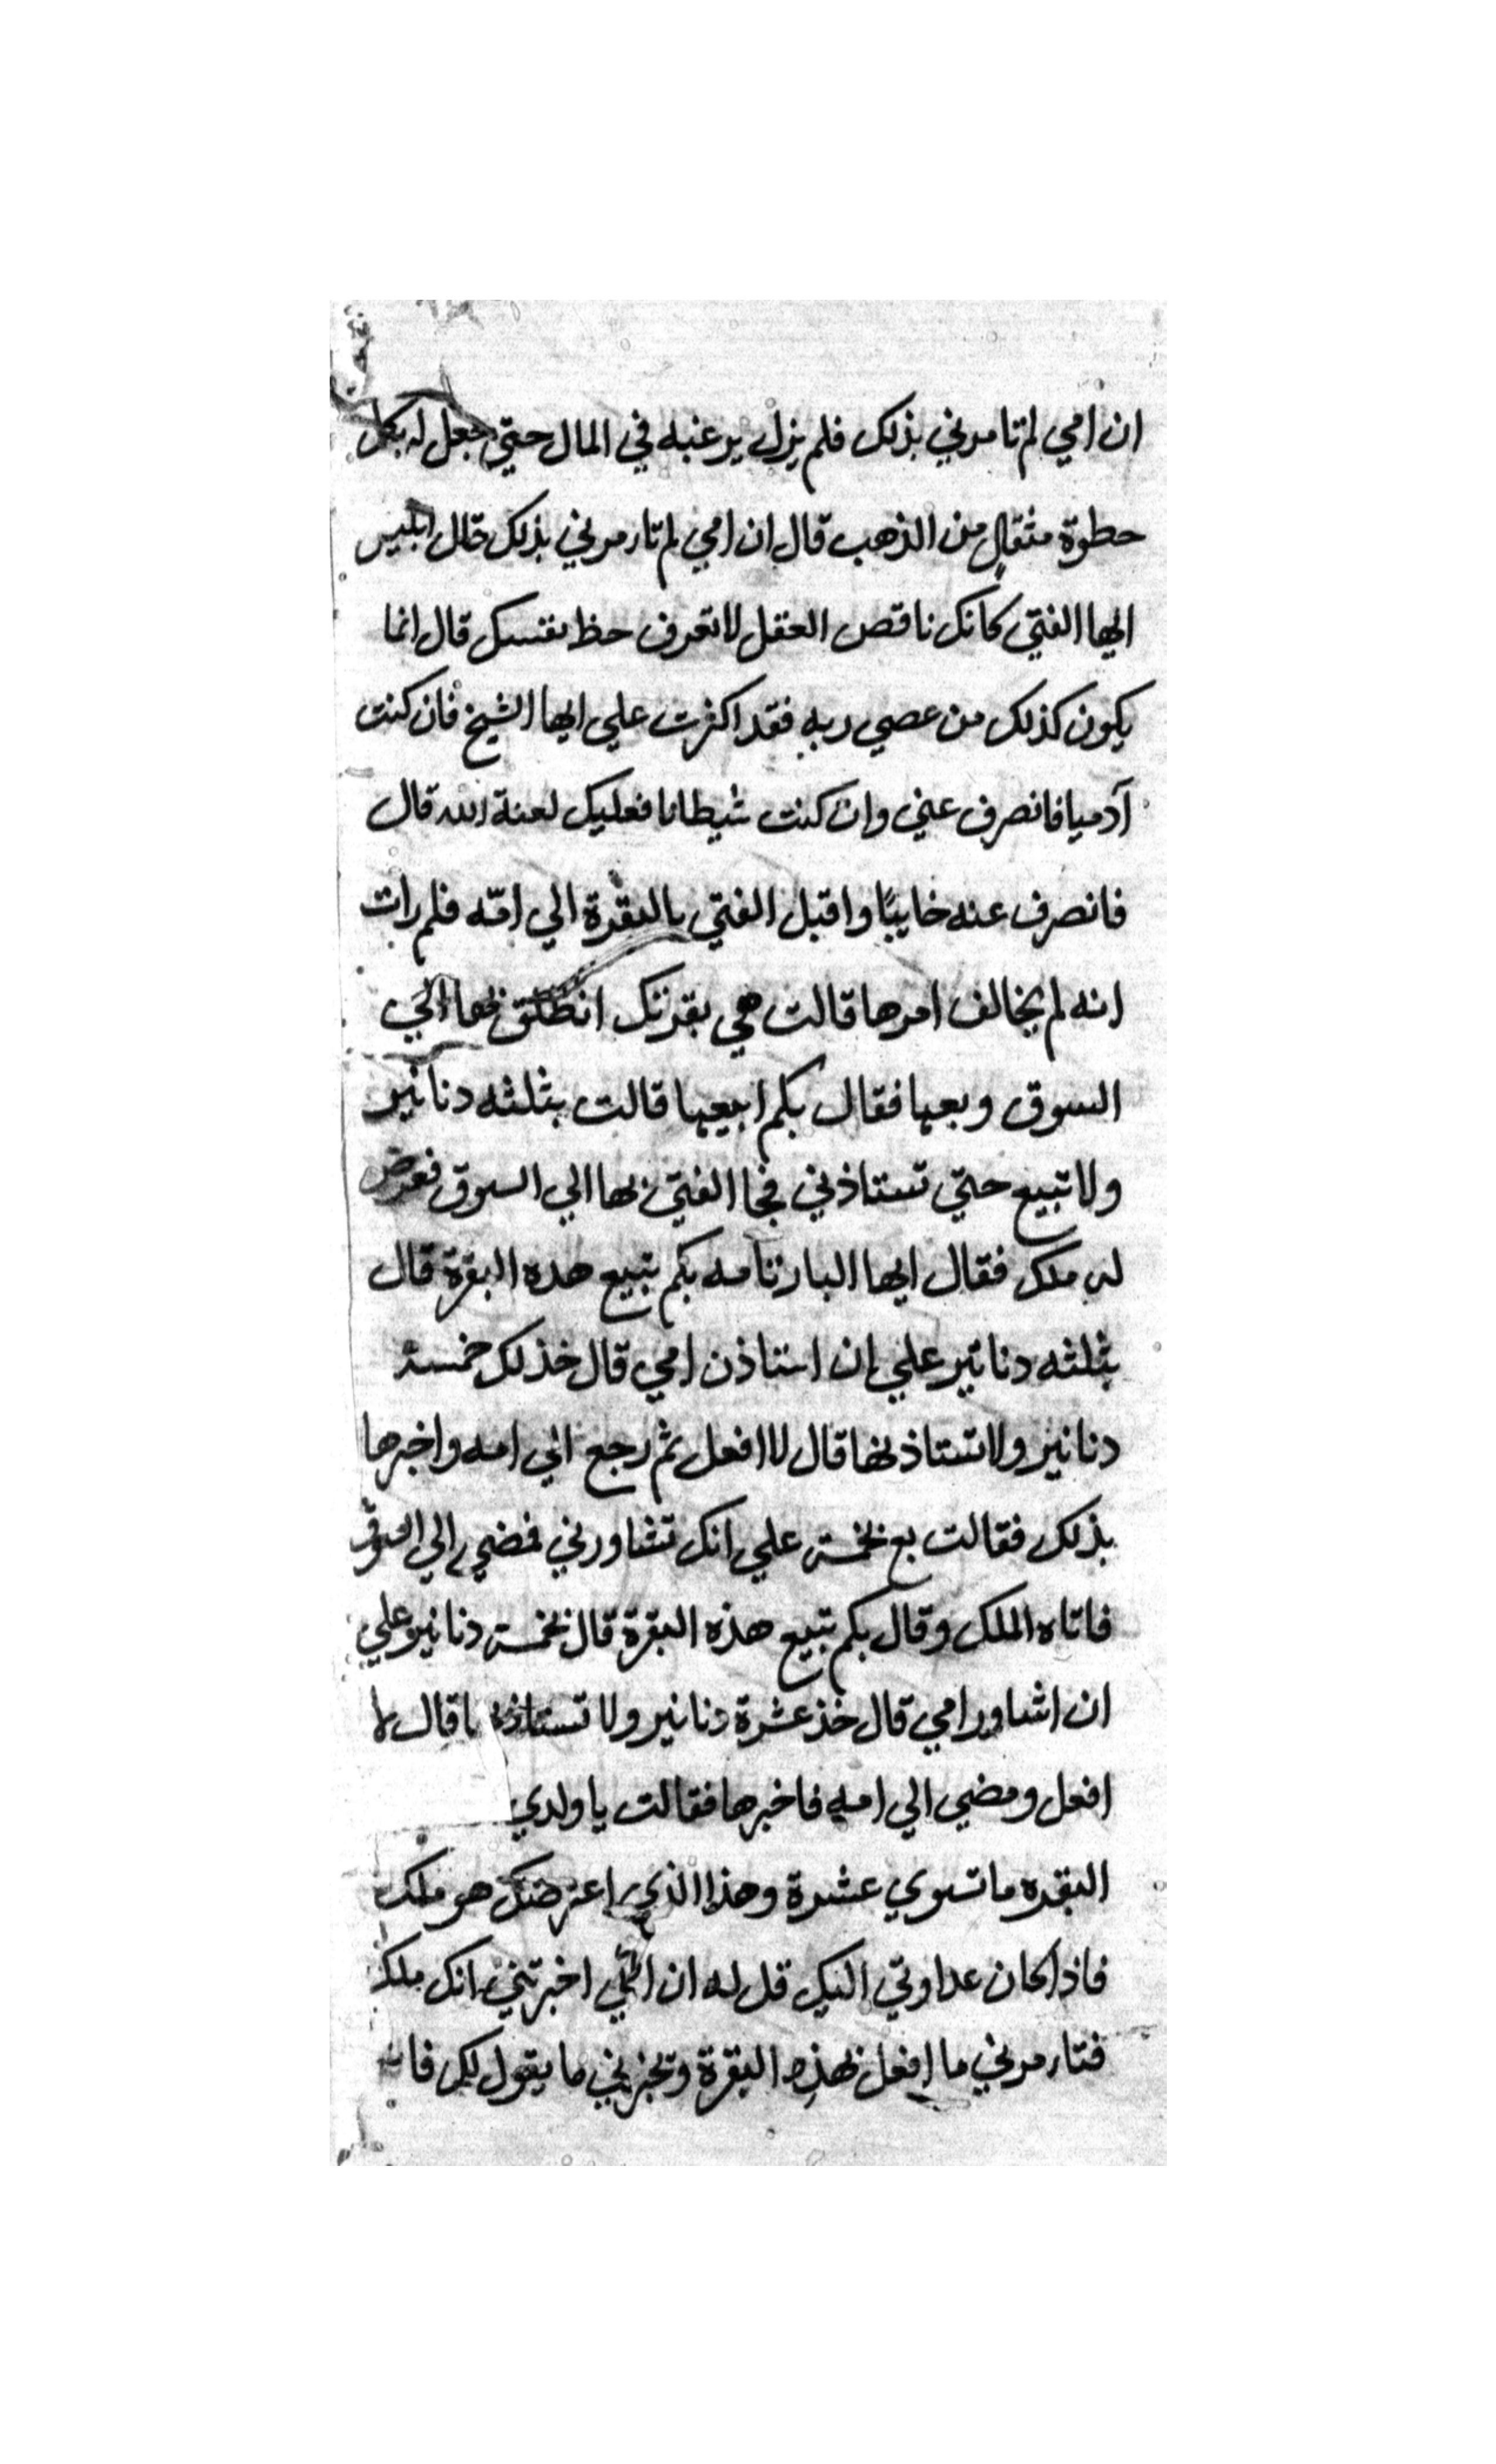 ان امي لم تامرني بذلك فلم يزل يرغبه في المال حتي جعل له بكل
خطوة مثقال من الذهب قال ان امي لم تارمرني بذلك قال ابليس
ايها الفتي كانك ناقص العقل لا تعرف حظ نفسك قال انما
يكون كذلك من عصي ربه فقد اكثرت علي ايها الشيخ فان كنت
آدميا فانصرف عني وان كنت شيطانا فعليك لعنة الله قال
فانصرف عنه خايبًا واقبل الفتي بالبقرة الي امّه فلم رات
انه لم يخالف امرها قالت هي بقرتك انطلق بها الي
السوق وبعها فقال بكم ابيعها قالت بثلثه دنانير
ولا تبيع حتي تستاذني فجا الفتي بها الي السوق فعرض
له ملك فقال ايها البار بامه بكم تبيع هده البقرة قال
بثلثه دنانير علي ان استاذن امي قال خذ لك خمسة
دنانير ولا تستاذنها قال لا افعل ثم رجع الي امه واخبرها
بذلك فقالت بع بخمسة علي انك تشاورني فمضي الي السوق
فاتاه الملك وقال بكم تبيع هذه البقرة قال بخمسة دنانير وعلي
ان اشاور امي قال خذ عشرة دنانير ولا تستاذنها قال لا
افعل ومضي الي امه فاخبرها فقالت يا ولدي
البقره ما تسوي عشرة وهذا الذي اعترضك هو ملك
فاذا كان عداوتي اليك قل له ان امّي اخبرتني انك ملك
فتارمرني ما افعل بهذه البقرة وتخبرني ما يقول لك